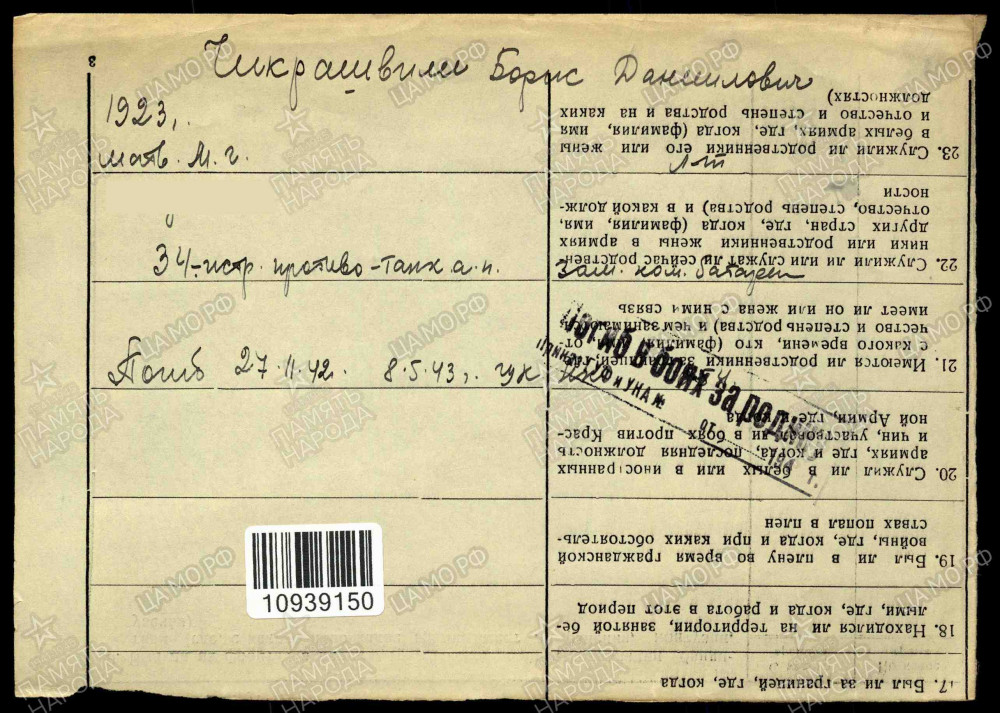 Чикрашвили Борис Даниилович
1923,.
матв. М. г.
Лт
34-истр. противо-танк а. п.
Зам. ком. батареи
Погиб 27.11.42. 8.5.43,. гук
Погиб в боях за родину
Приказ ГУФ и УНА №
от 194 г.
10939150
3
23. Служили ли родственники его или жены в белых армиях, где, когда (фамилия, имя и отчество и степень родства и на каких должностях)
22. Служили или или служат ли сейчас родственники или родственники жены в армиях других стран, где, когда (фамилия, имя, отчество, степень родства) и в какой должности
21. Имеются ли родственники заграницей, где, с какого времени, кто (фамилия, имя, отчество и степень родства) и чем занимаются, имеет ли он или жена с ними связь
20. Служил ли в белых или в иностранных армиях, где и когда, последняя должность и чин, участвовал ли в боях против Красной Армии, где и когда
19. Был ли в плену во время гражданской войны, где, когда и при каких обстоятельствах попал в плен
18. Находился ли на территории, занятой белыми, где, когда и работа в этот период
17. Был ли за-границей, где, когда
ПАМЯТЬ НАРОДА
ЦАМО.РФ